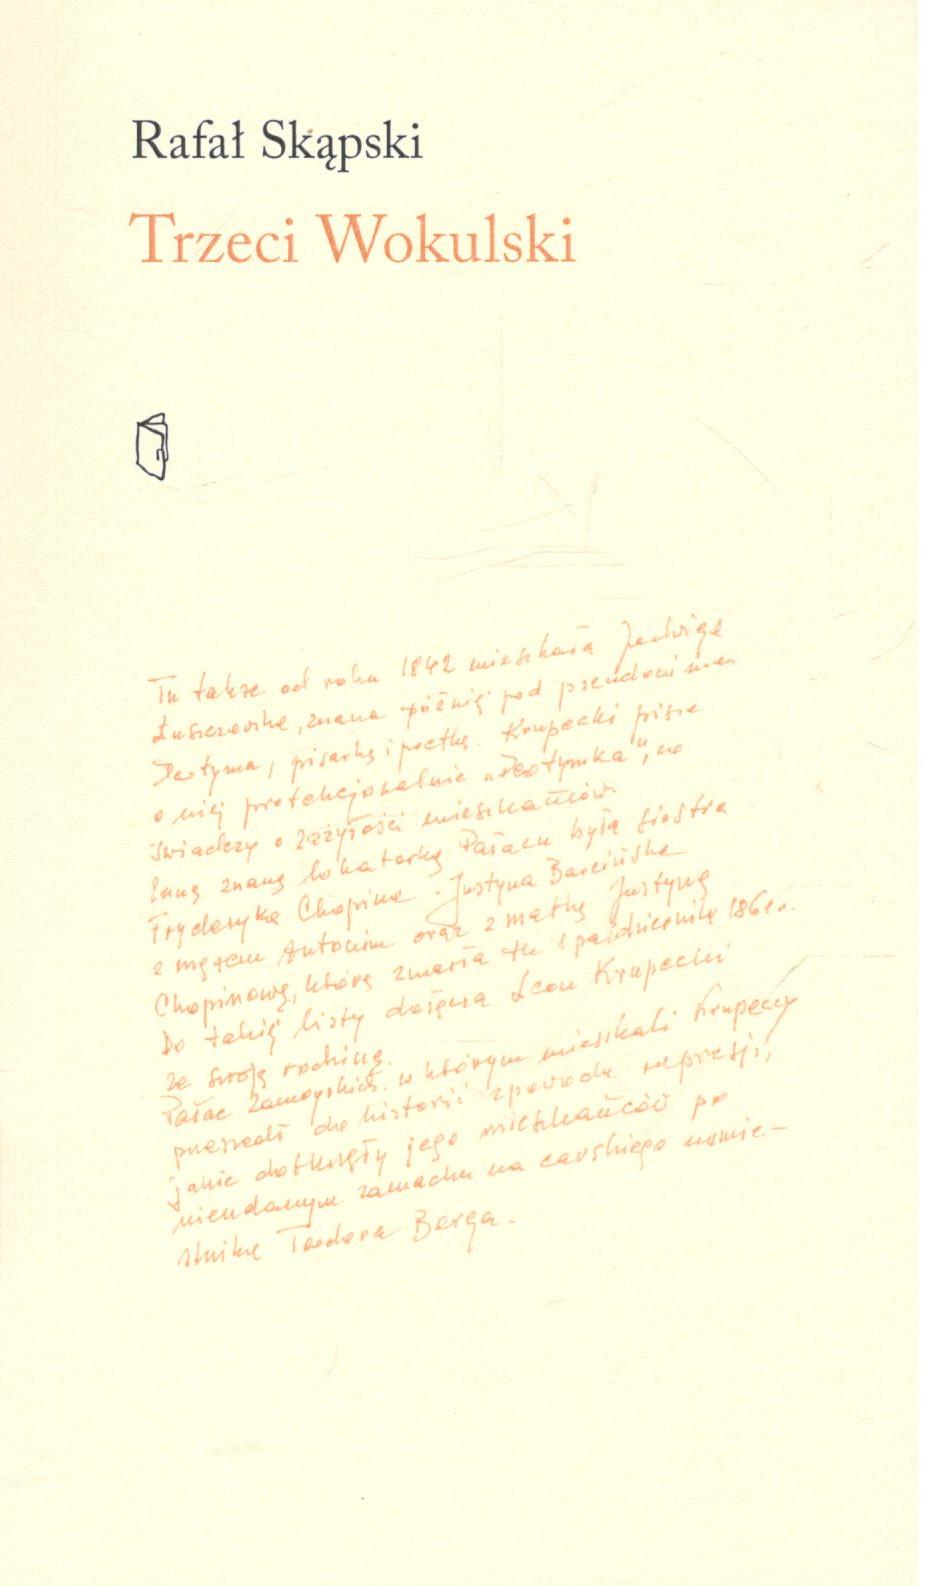 Rafał Skąpski
Trzeci Wokulski
Tu także od roku 1842 mieszkała Jadwiga
Łuszczewska, znana później pod pseudonimem
Deotyma, pisarką i poetką. Krupecki pisze
o niej protekcjonalnie „Deotymka”, co
świadczy o zażyłości mieszkańców.
Inną znaną lokatorką Pałacu była siostra
Fryderyka Chopina - Justyna Barcińska
z mężem Antonim oraz z matką Justyną
Chopinową, która zmarła tu 1 października 1861 r.
Do takiej listy dołącza Leon Krupecki
ze swoją rodziną.
Pałac Zamoyskich w którym mieszkali Krupeccy
przeszedł do historii z powodu represji,
jakie dotknęły jego mieszkańców po
nieudanym zamachu na carskiego namie-
stnika Teodora Berga.